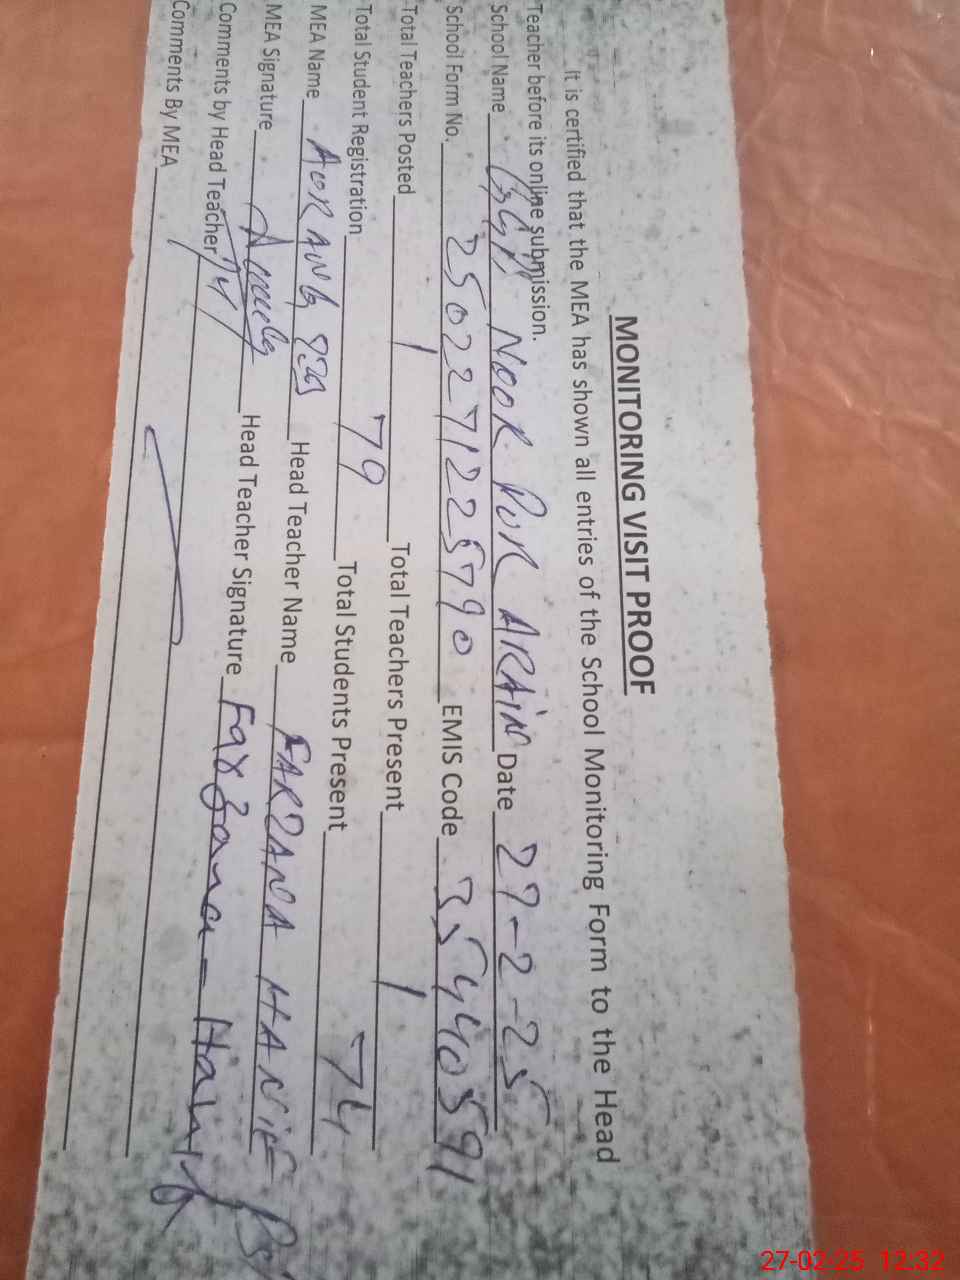 MONITORING VISIT PROOF
It is certified that the MEA has shown all entries of the School Monitoring Form to the Head
Teacher before its online submission.
School Name NOOR PUR ARAIN Date 27-2-25
School Form No. 2502271225790 EMIS Code 35440591
Total Teachers Posted 1 Total Teachers Present 1
Total Student Registration 79 Total Students Present 74
MEA Name AORANG Head Teacher Name FARZANA HANIF
MEA Signature Head Teacher Signature Farzana Hanif
Comments by Head Teacher
Comments By MEA
27-02-25 12:32